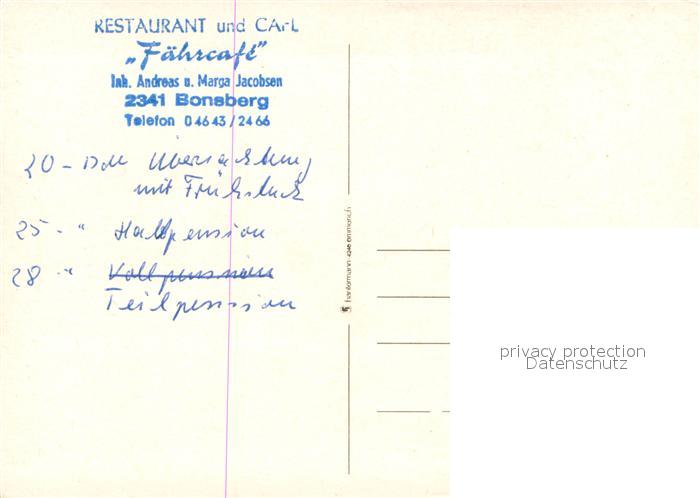 RESTAURANT und CAFE
„Fährcafé"
Inh. Andreas u. Marga Jacobsen
2341 Bonsberg
Telefon 04643/2466
20 - DM Übernachtung
mit Frühstück
25 - " Halbpension
28 " Vollpension
Teilpension
hardermann 4240 emmerich
privacy protection
Datenschutz